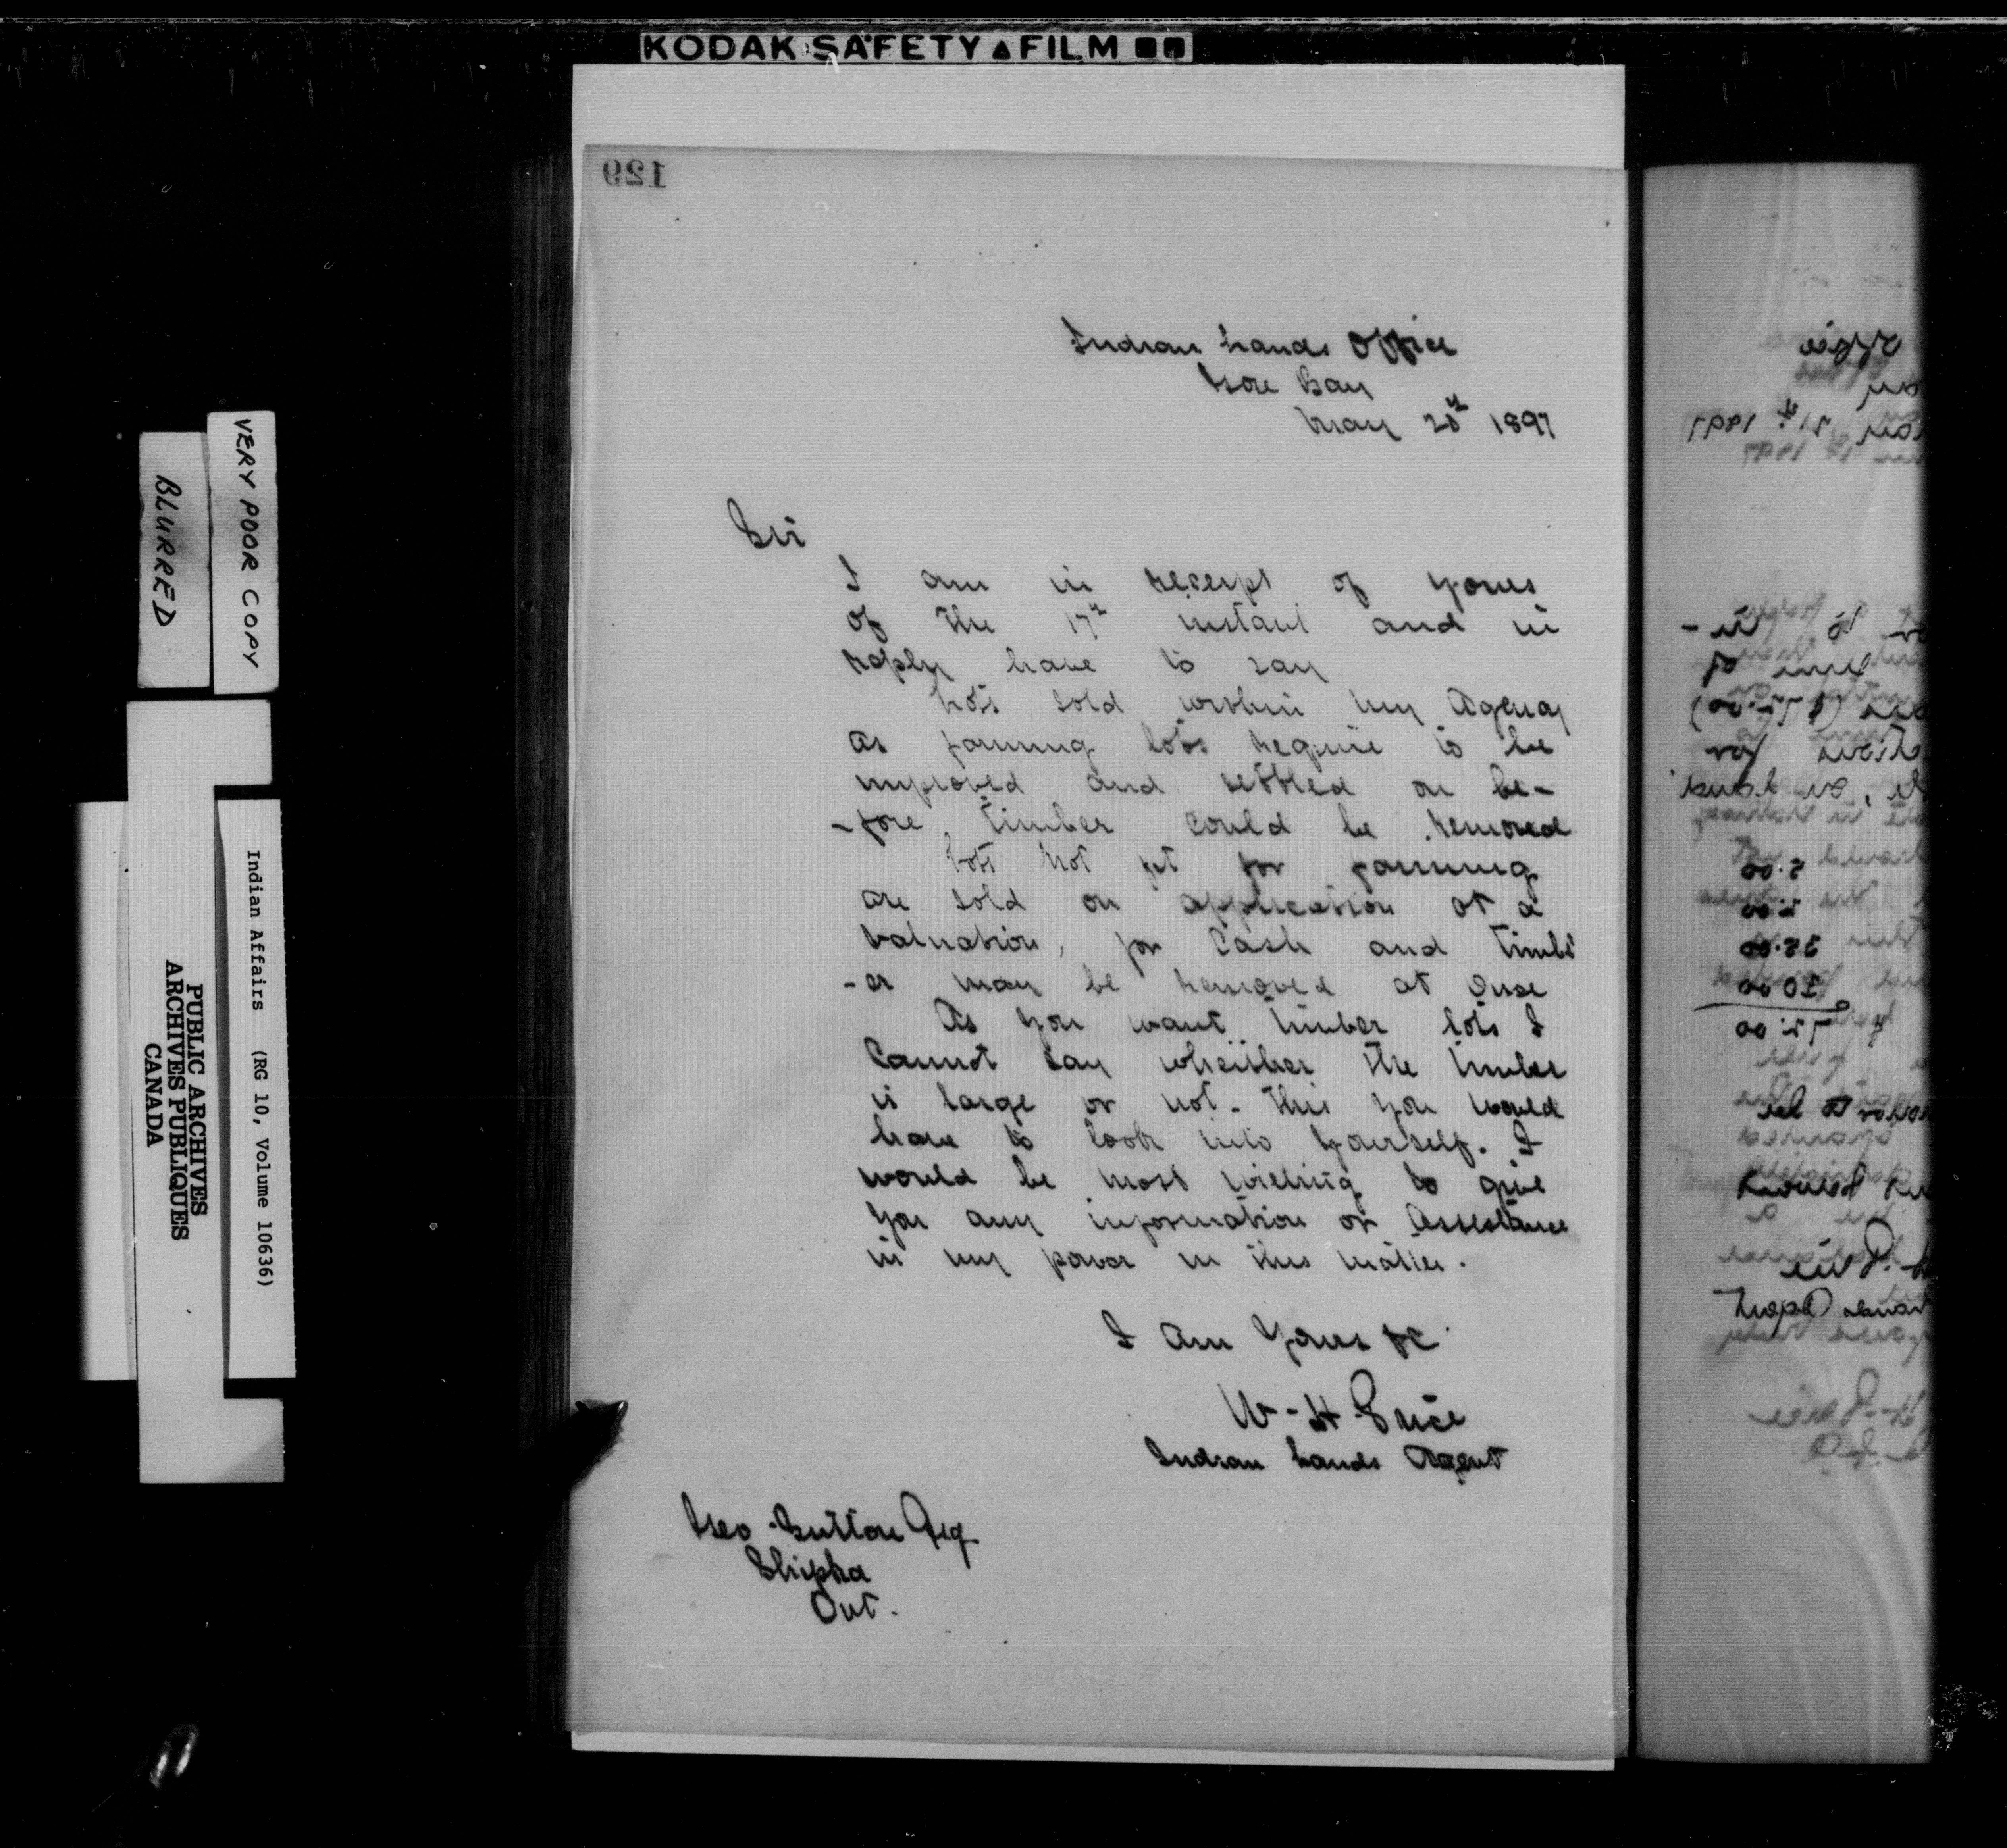 KODAK SAFETY FILM
129
Indian Lands Office
Gore Bay
May 20th 1897
Sir
I am in receipt of yours
of the 17th instant and in
reply have to say
Lots sold within my Agency
as farming lots require to be
improved and settled on be-
-fore timber could be removed
Lots not fit for farming
are sold on application at a
valuation, for Cash and timb
-er may be removed at once
As you want timber lots I
Cannot say wheither the timber
is large or not. This you would
have to look into yourself. I
would be most willing to give
you any information or Assistance
in my power in this matter.
I am yours &c
W-H-Price
Indian Lands Agent
Geo. Sutton Esq
Shipka
Ont.
VERY POOR COPY
BLURRED
Indian Affairs (RG 10, Volume 10636)
PUBLIC ARCHIVES
ARCHIVES PUBLIQUES
CANADA